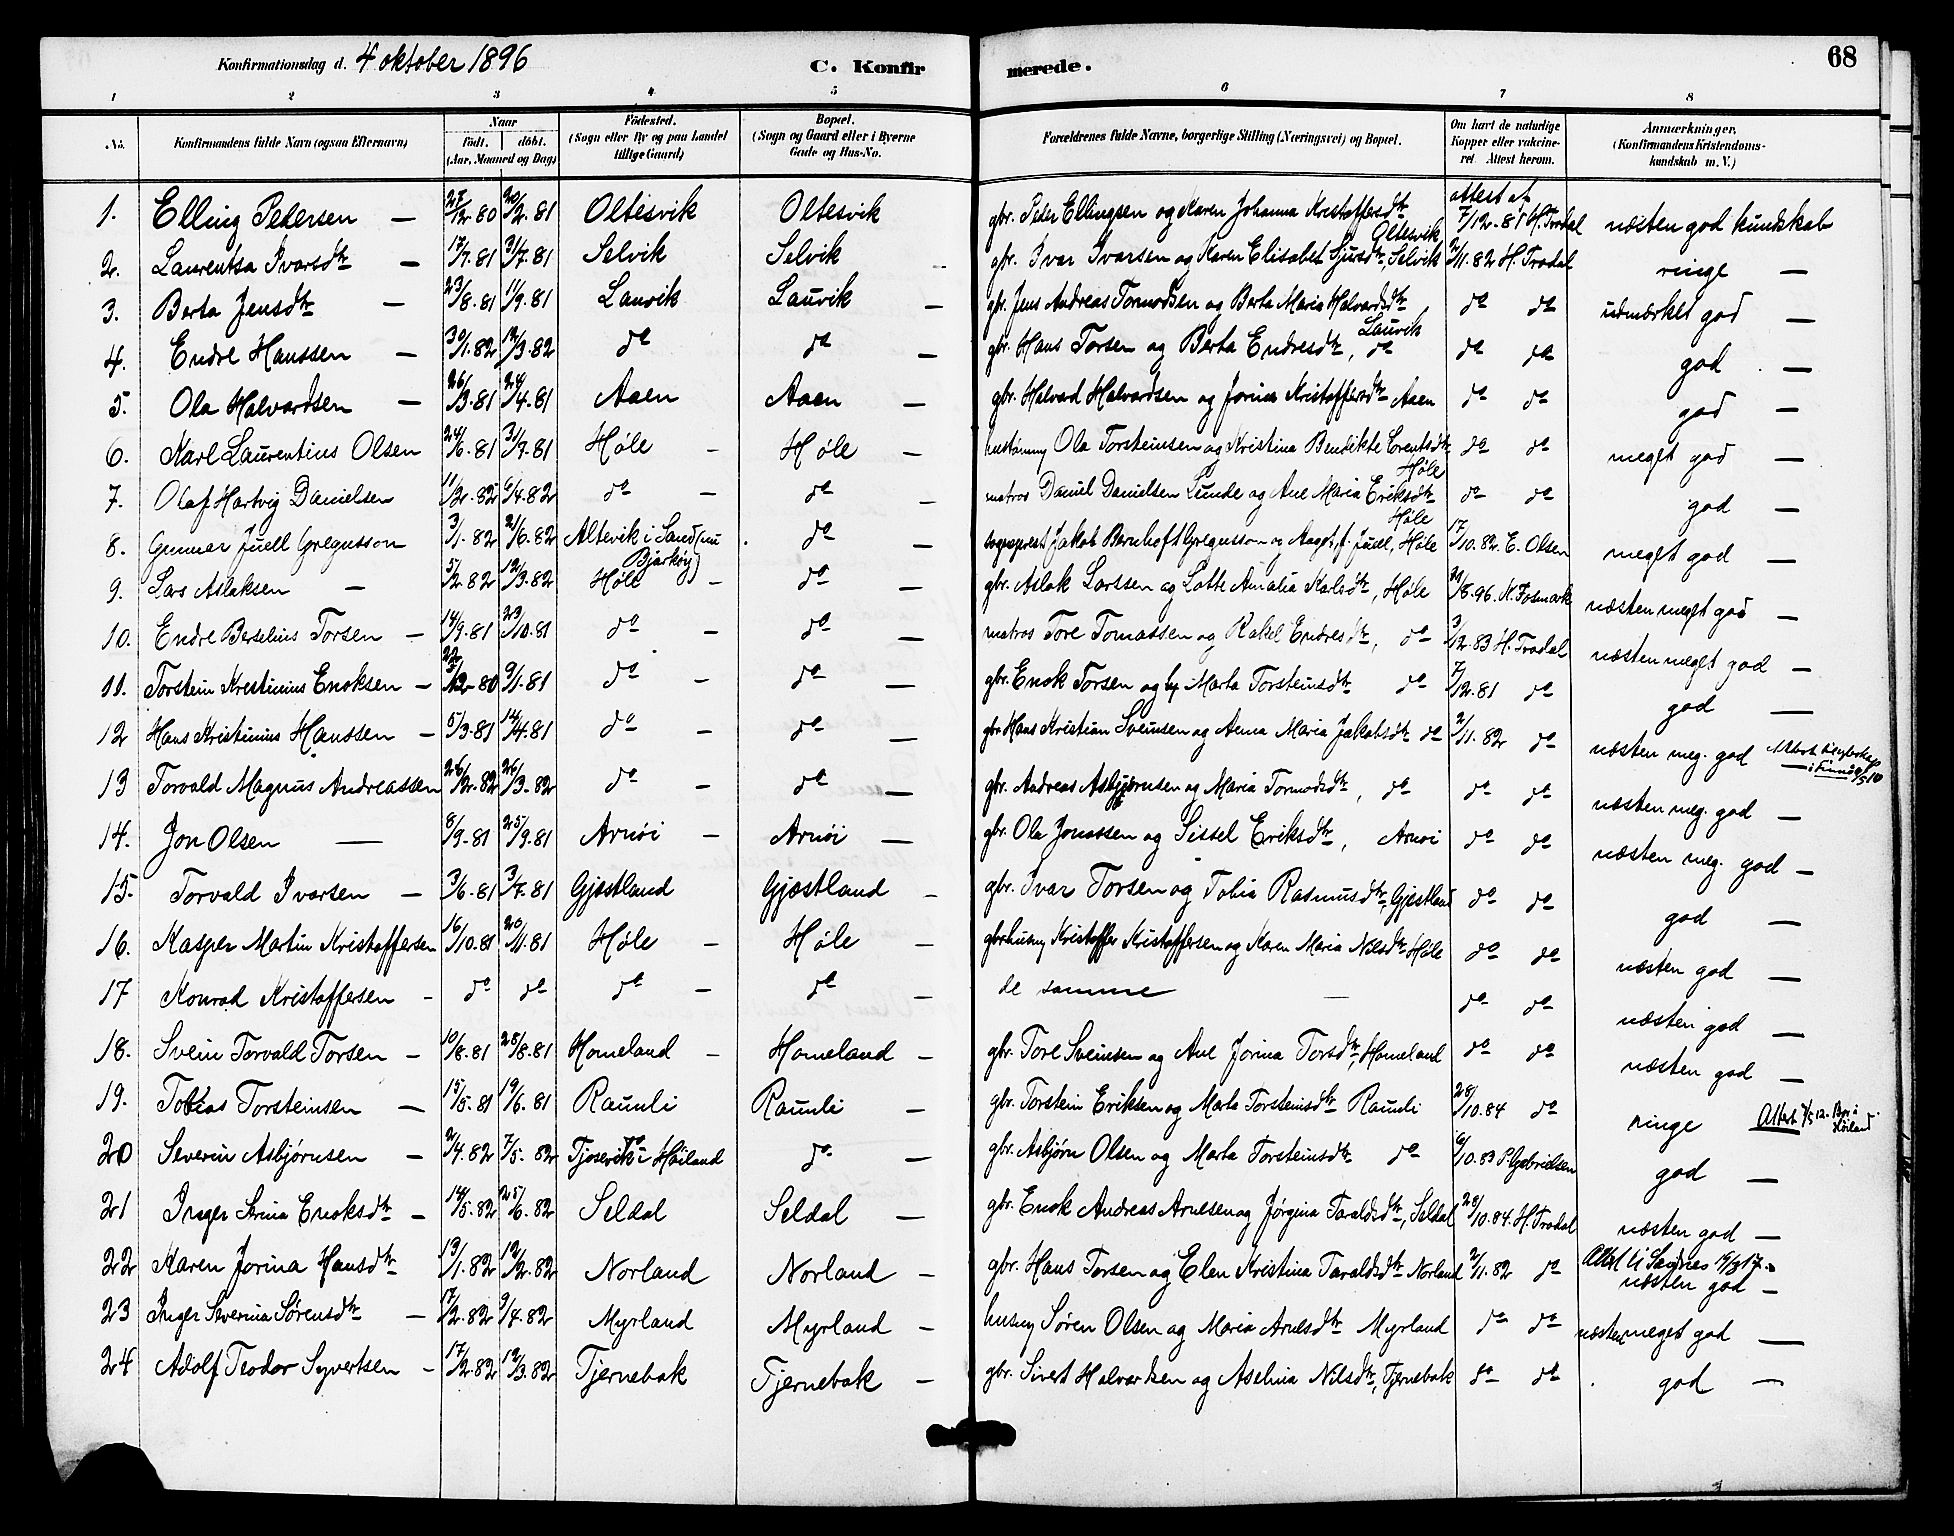 Konfirmationsdag d. 4 oktober 1896
C. Konfirmerede.
68
1 2 3 4 5 6 7 8
No. Konfirmandens fulde Navn (ogsaa Efternavn) Naar födt. döbt. (Aar, Maaned og Dag) Födested. (Sogn eller By og paa Landet tillige Gaard) Bopæl. (Sogn og Gaard eller i Byerne Gade og Hus-No. Forældrenes fulde Navne, borgerlige Stilling (Næringsvei) og Bopæl. Om havt de naturlige Kopper eller vakcineret Attest herom. Anmærkninger. (Konfirmandens Kristendomskundskab m. V.)
1. Elling Pedersen — 27/12.80 20/2.81 Oltesvik Oltesvik gbr. Peter Ellingsen og Karen Johanna Kristoffersdtr Oltesvik attest af 7/12.81 H. Trodal næsten god kundskab
2. Laurentsa Ivarsdtr — 17/7.81 31/7.81 Selvik Selvik gbr. Ivar Ivarsen og Karen Elisabet Sjursdtr, Selvik 2/11.82 H. Trodal ringe —
3. Berta Jensdtr — 23/8.81 11/9.81 Lauvik Lauvik — gbr. Jens Andreas Tormodsen og Berta Maria Halvardsdtr Lauvik do do udmærket god —
4. Endre Hanssen — 30/1.82 12/3.82 do do — gbr. Hans Torsen og Berta Endresdtr, do do do god —
5. Ola Halvardsen — 26/3.81 24/4.81 Aaen Aaen — gbr. Halvad Halvardsen og Jorina Kristoffersdtr Aaen do do god —
6. Karl Laurentius Olsen 24/6.81 31/7.81 Høle — Høle — Ola Torsteinsen og Kristina Bendikte Lorentsdtr Høle do do meget god —
7. Olaf Hartvig Danielsen 11/2.82 6/4.82 do — do — matros Daniel Danielsen Lunde og Ane Maria Eriksdtr Høle do do god —
8. Gunnar Juell Gregusson 3/1.82 21/6.82 Altevik i Sand (nu Bjarkøy) do — sogneprest Jakob Bernhoft Gregusson og Aagot f. Juell, Høle 17/10.82. E. Olsen meget god —
9. Lars Aslaksen — 5/2 82 12/3.82 Høle — do — gbr. Aslak Larssen og Lotte Amalia Karlsdtr, Høle /8.96. K. Fosmark næsten meget god —
10. Endre Berselius Torsen — 14/9.81 23/10.81 do — do — matros Tore Tomassen og Rakel Endresdtr, do 3/12.83 H. Trodal næsten meget god —
11. Torstein Kristinius Enoksen — 22/12.80 9/1.81 do — do — gbr. Enok Torsen og Marta Torsteinsdtr do 7/12.81 do god —
12 Hans Kristinius Hanssen — 5/3.81 14/4.81 do — do — gbr Hans Kristian Sveinsen og Anna Maria Jakobsdtr do 2/11.82 do næsten meg. god
13 Torvald Magnus Andreassen 26/2.82 26/3.82 do — do — gbr. Andreas Asbjørnsen og Maria Tormodsdtr, do do do næsten meg. god —
14. Jon Olsen — 8/9.81 25/9.81 Arnöi — Arnöi — gbr. Ola Jonassen og Sissel Eriksdtr, Arnöi do do næsten meg. god —
15. Torvald Ivarsen — 3/6.81 3/7.81 Gjæstland Gjæstland — gbr. Ivar Torsen og Tobia Rasmusdtr, Gjæstland do do god —
16. Kasper Martin Kristoffersen 16/10.81 20/11.81 Høle — Høle — Kristoffer Kristoffersen og Karen Maria Nilsdtr Høle do do næsten god —
17 Konrad Kristoffersen — do do do — do — de samme — do do næsten god —
18. Svein Torvald Torsen — 10/8.81 28/8.81 Homeland — Homeland — gbr. Tore Sveinsen og Ane Jorina Torsdtr, Homeland do do næsten god —
19. Tobias Torsteinsen — 15/5.81 19/6.81 Raunli Raunli — gbr. Torstein Eriksen og Marta Torsteinsdtr Raunli 28/10.84 do ringe Attest
20 Severin Asbjørnsen — 2/4.82 7/5.82 Tjosevik i Høiland do. — gbr. Asbjørn Olsen og Marta Torsteinsdtr do 6/10.83 P. Gabrielsen god —
21 Inger Serina Enoksdtr — 14/5.82 25/6.82 Seldal Seldal — gbr. Enok Andreas Arnesen og Jørgina Taraldsdtr, Seldal 28/10.84. H. Trodal næsten god —
22 Karen Jorina Hansdtr 13/1.82 12/2.82 Norland Norland — gbr. Hans Torsen og Elen Kristina Taraldsdtr Norland 2/11.82 do næsten god —
23 Inger Severina Sørensdtr — 17/2.82 9/4.82 Myrland Myrland — husmg Søren Olsen og Maria Arnesdtr Myrland do do næsten meget god —
24 Adolf Teodor Syvertsen — 17/2.82 12/3.82 Tjernebak Tjernebak — gbr. Sivert Halvardsen og Aselina Nilsdtr, Tjernebak do do god —